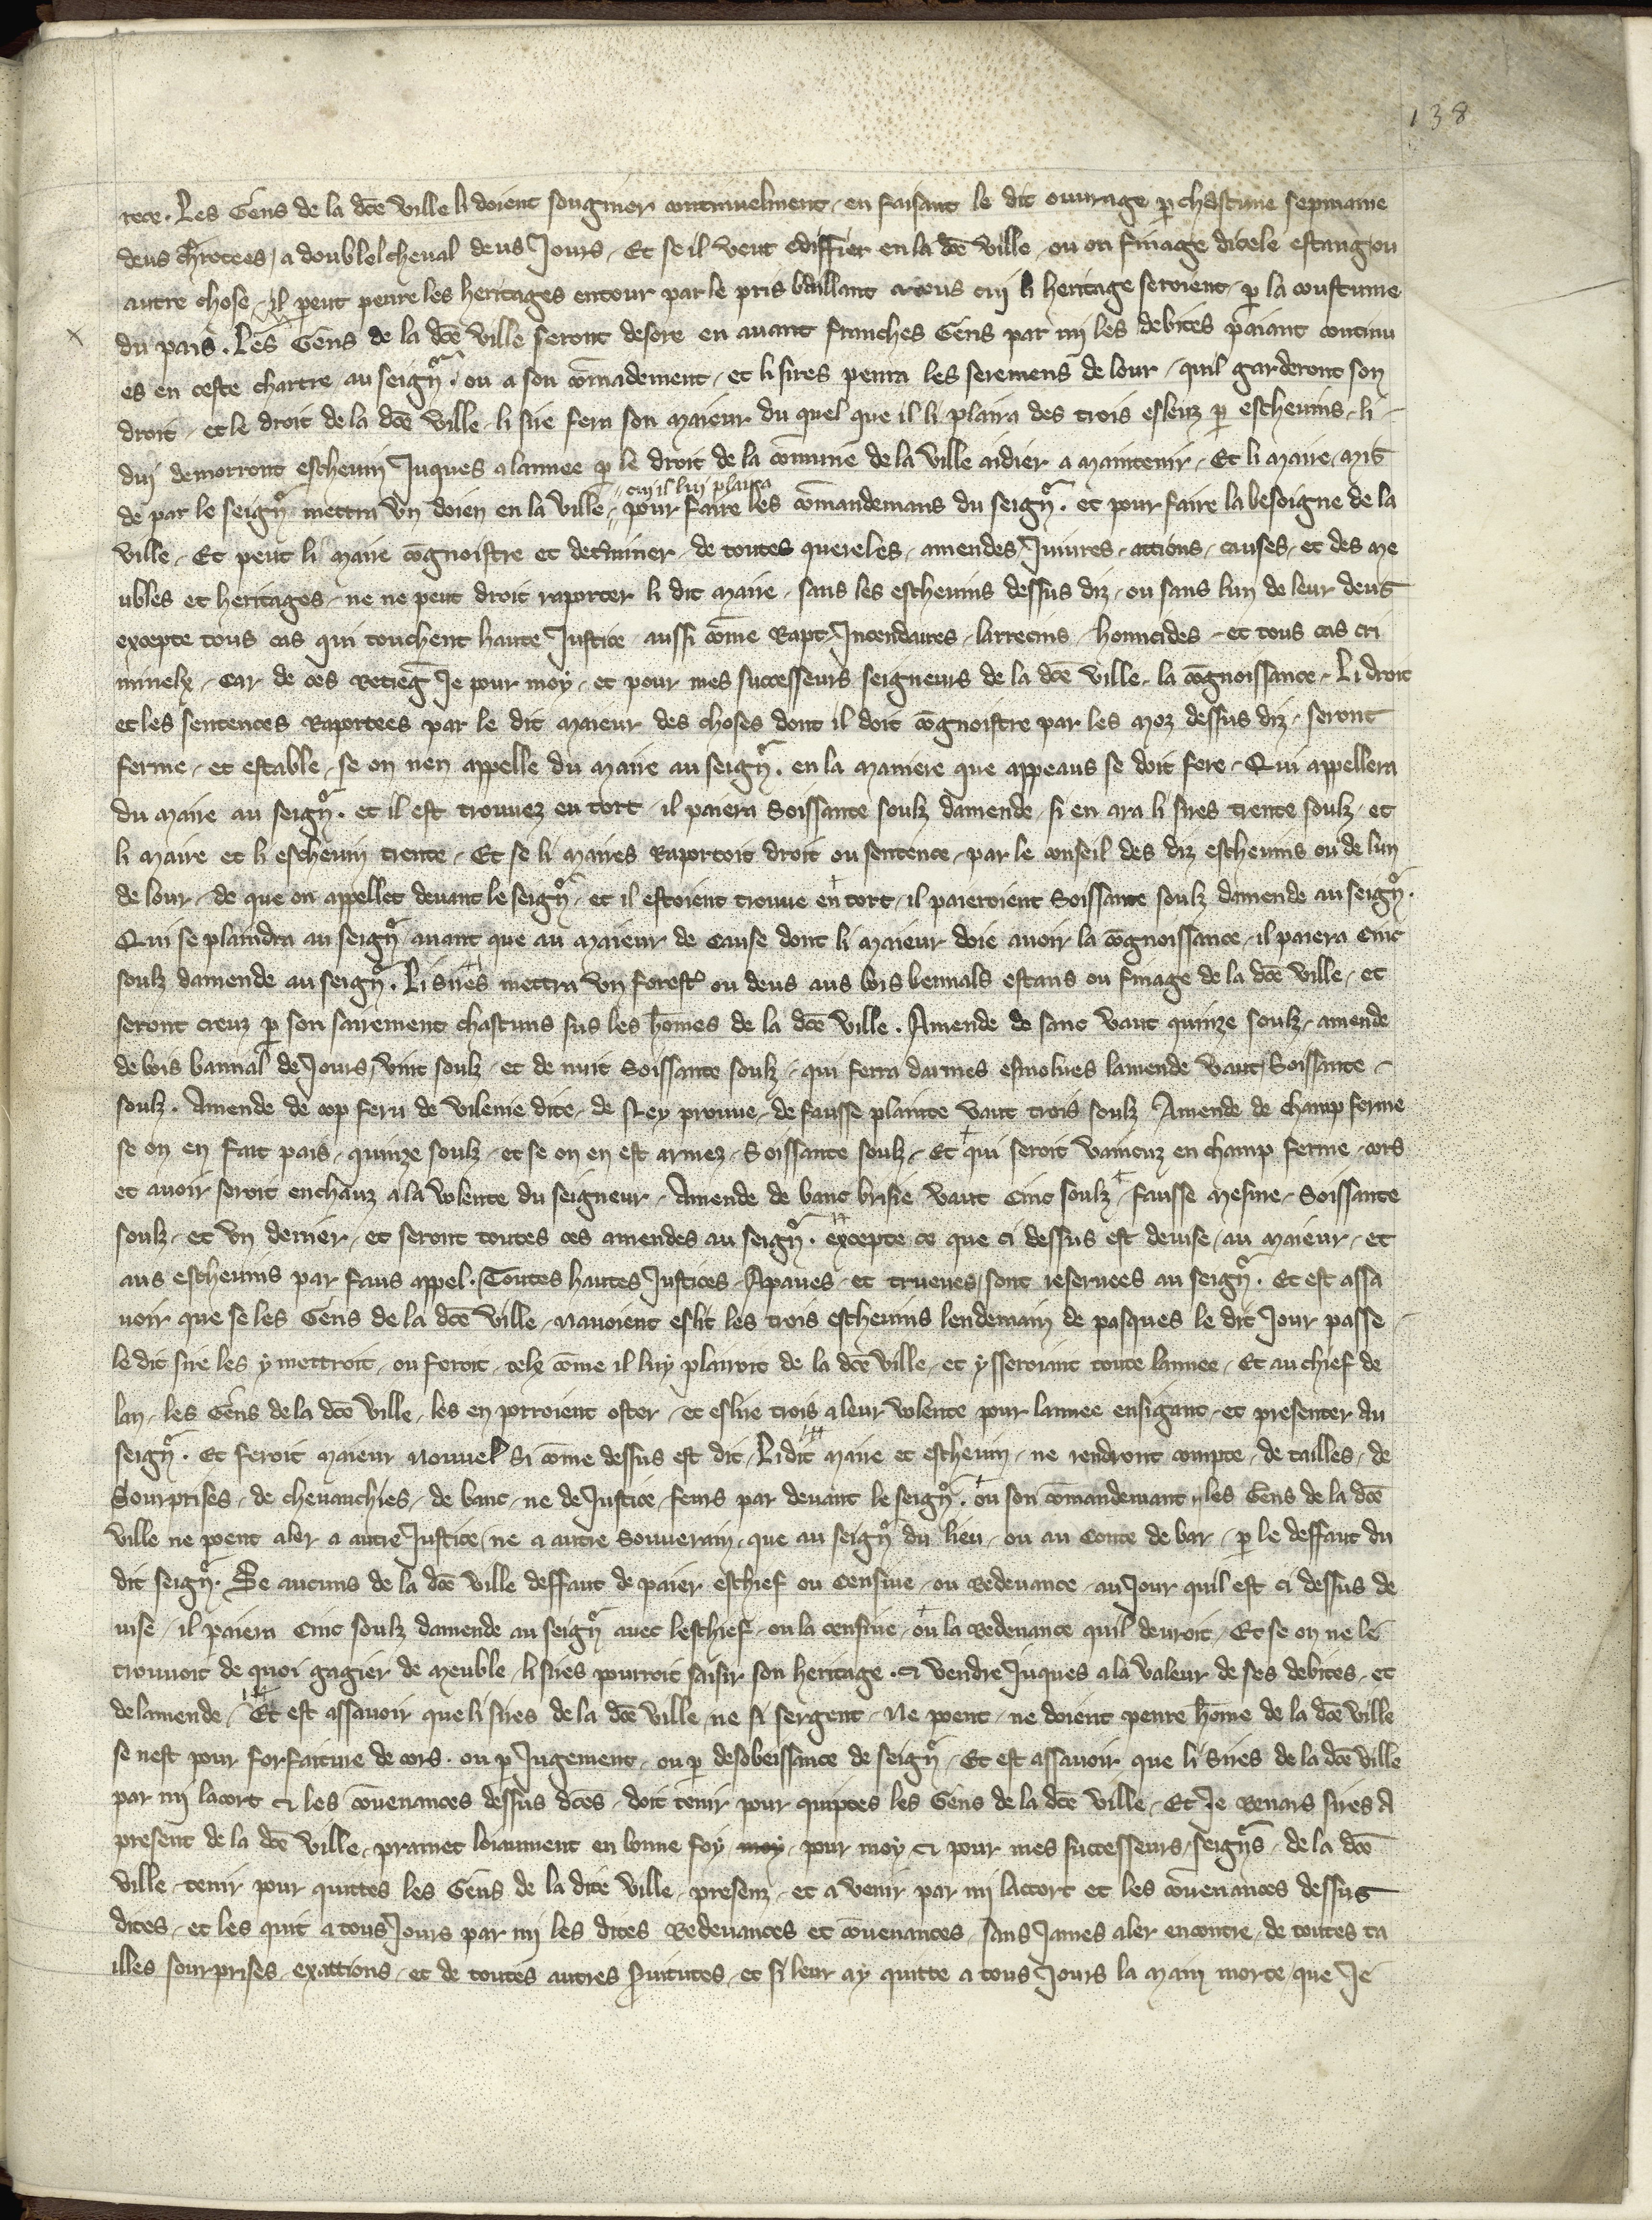 138
rece. Les Gens de la dce ville li doient songnier continuelment, en faisant le dit ouvrage p chascune sepmaine
deus chrotees, a doublel cheval deus Jours. Et se il veut ediffier en la dce ville, ou on finage dicele estang ou
autre chose, il peut penre les heritages entour par le pris baillant a ceus cuj li heritage seroient, p la coustume
du pais. Les Gens de la dce ville seront desore en auant franches Gens par mj les debites paiant continu
es en ceste chartre au seignr. ou a son comādement, et li sires penra les seremens de lour, quil garderont son
droit, et le droit de la dce ville, li sire fera son maieur du quel que il li plaira des trois esleuz p escheuins, li
duj demorront escheuin Juques a lannee p le droit de la comune de la ville aidier a maintenir. Et li maire, mis
de par le seignr mettra vn doien en la ville, cuj il luj plaira
pour faire les comandemans du seignr. et pour faire la besoigne de la
ville, Et peut li maire cognoistre et determiner, de toutes quereles, amendes, Iniures, actions, causes, et des me
ubles et heritages, ne ne peut droit raporter li dit maire, sans les escheuins dessus diz, ou sans lun de leur deus
excepte tous cas qui touchent haute Justice aussi come Rapt, Incendaires, larrecins, homicides, et tous cas cri
minelx, Car de ces retieg Je pour moy, et pour mes successeurs seigneurs de la dce ville, la cognoissance, Li droit
et les sentences Raportees par le dit maieur des choses dont il doit cognoistre par les moz dessus diz, seront
ferme, et estable, se on nen appelle du maire au seignr. en la maniere que appeaus se doit fere, Qui appellera
du maire au seignr. et il est trouuez en tort, il paiera Soissante soulz damende, si en ara li sires trente soulz, et
li maire et li escheuin trente, Et se li maires Raportoit droit ou sentence, par le conseil des diz escheuins ou de lun
de lour, de que on appellet deuant le seignr, et il estoient trouue en tort, il paieroient Soissante soulz damende au seignr.
Qui se plaindra au seignr auant que au maieur de Cause dont li maieur doie auoir la cognoissance, il paiera Cinc
soulz damende au seignr. Li sires mettra vn forestr ou deus aus bois bennals estans ou finage de la dce ville, et
seront creuz p son sairement chascuns sus les homes de la dce ville. Amende de sanc vaut quinze soulz, amende
de bois bannal de Jours, vint soulz, et de nuit Soissante soulz, qui ferra darmes esmolues lamende vaut Soissante
soulz. Amende de cop feru de vilenie dite, de Ney prouue, de fausse plainte vaut trois soulz Amende de champ ferme
se on en fait pais, quinze soulz, et se on en est armez, Soissante soulz, Et qui seroit vaincuz en champ ferme, cors
et auoir seroit encheuz a la volente du seigneur, Amende de banc brisie vaut Cinc soulz, fausse mesure, Soissante
soulz, et vn denier, et seront toutes ces amendes au seignr. excepte ce que ci dessus est deuise, au maieur, et
aus escheuins par faus appel. Toutes hautes Justices, Apaues, et trueues, sont reseruees au seignr. Et est assa
uoir que se les Gens de la dce ville, nauoient eslit les trois escheuins lendemain de pasques le dit Jour passe,
le dit sire les y mettroit, ou feroit, telx come il luy plairoit de la dce ville, et ysseroiant toute lannee, Et au chief de
lan, les Gens de la dce ville, les en porroient oster, et eslire trois a leur volente pour lannee ensigant, et presenter au
seignr. Et feroit maieur nouuel si come dessus est dit, Li dit maire et escheuin, ne rendront compte, de tailles, de
Sourprises, de cheuauchies, de banc, ne de Justice, feurs par deuant le seignr. ou son comandemant, les Gens de la dce
ville ne poent aler a autre Justice, ne a autre Souuerain, que au seignr du lieu, ou au Conte de bar, p le deffaut du
dit seignr. Se aucuns de la dce ville deffaut de paier eschief ou Censiue, ou Redeuance, au Jour quil est ci dessus de
uise, il paiera Cinc soulz damende au seignr auec leschief, ou la censiue, ou la Redeuance quil deuroit, Et se on ne le
trouuoit de quoi gagier de meuble, li sires pourroit saisir son heritage. et vendre Juques a la valeur de ses debites, et
de lamende, Et est assauoir que li sires de la dce ville, ne si sergent, Ne poent, ne doient penre home de la dce ville
se nest pour forfaiture de cors. ou p Jugement, ou p desobeissance de seignr, Et est assauoir que li sires de la dce ville
par mi lacort et les couenances dessus dces, doit tenir pour quiptes les Gens de la dce ville, Et Je Renars sires A
present de la dce ville, pramet loiaument en bonne foy, moy, pour moy et pour mes successeurs, seignrs, de la dce
ville, tenir pour quittes les Gens de la dite ville, presenz, et a venir par mi laccort et les couenances dessus
dites, et les quit a tous Jours par mi les dites Redeuances et couenances, sans James aler encontre, de toutes ta
illes sourprises, exactions, et de toutes autres seruitutes, et si leur ay quitte a tous Jours la main morte, que Je